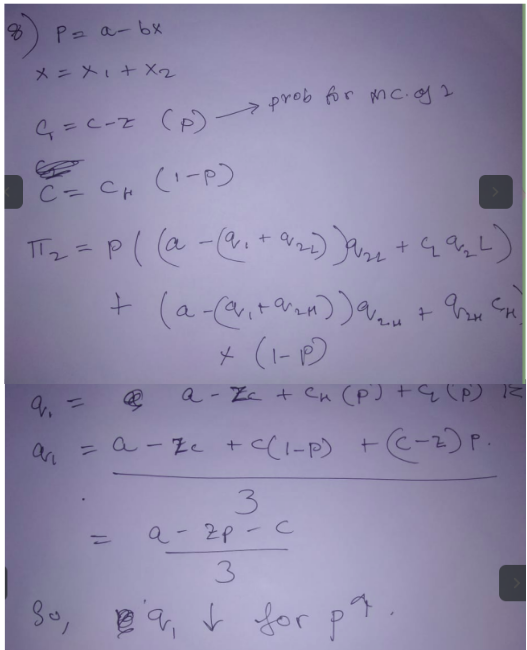 8) P = a - bx
x = x1 + x2
C = c - z (p) → prob for MC of 2
C = CH (1-p)
π2 = p((a - (q1 + q2L))q2L + CL q2L)
+ (a - (q1 + q2H))q2H + q2H CH)
× (1-p)
q1 = a - 2c + CH (p) + CL (p)
q1 = a - 2c + c(1-p) + (c-z) p.
3
= a - zp - c
3
So, q1 ↓ for p↑.